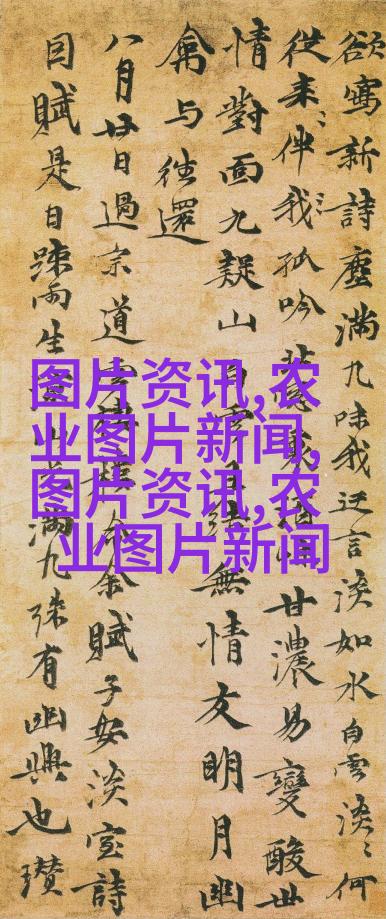 欲寫新詩塵滿几味我迂言淡如水白雲淡〻何
從來〻伴我〻孤吟 甘濃易變酸世
情對面九疑山 白雲 無情友明月幽
禽与往還
八月廿日過宗道 余賦子安淡室詩
因賦是日疎雨生 滿几殊有幽興也瓚
图片资讯,农
业图片新闻,
图片资讯,农
业图片新闻